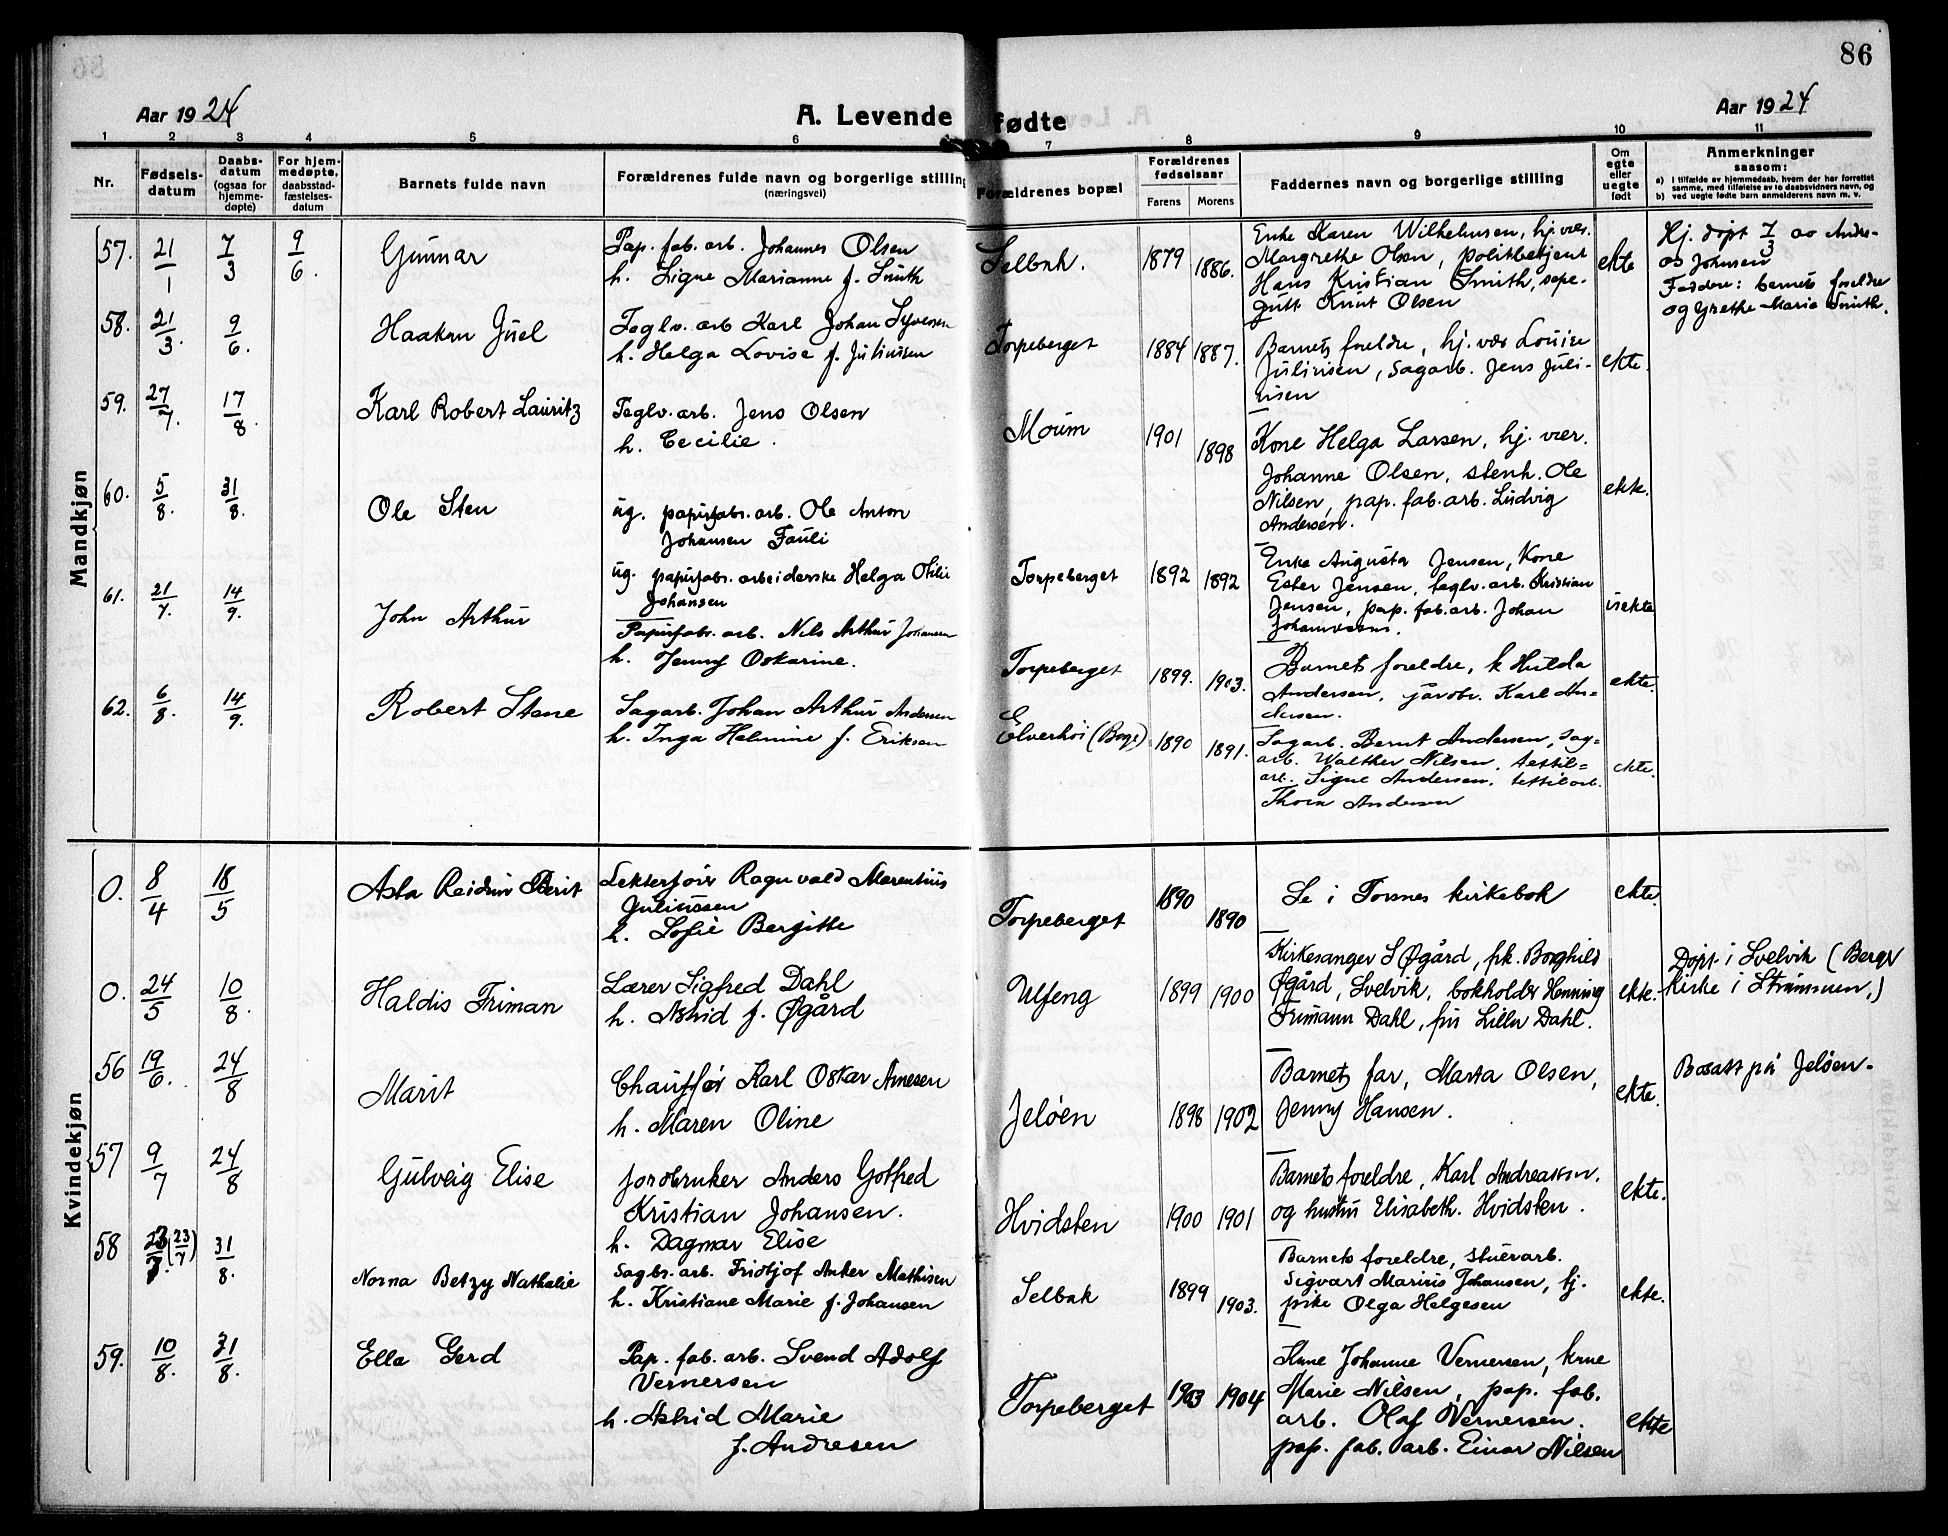 86
Aar 1924
A. Levende fødte
Aar 1924
1 2 3 4 5 6 7 8 9 10 11
Nr.
Fødsels-
datum
Daabs-
datum
(ogsaa for
hjemme-
døpte)
For hjem-
medøpte,
daabsstad-
fæstelses-
datum
Barnets fulde navn
Forældrenes fulde navn og borgerlige stilling
(næringsvei)
Forældrenes bopæl
Forældrenes
fødselsaar
Farens Morens
Faddernes navn og borgerlige stilling
Om
egte
eller
uegte
født
Anmerkninger
saasom:
a) i tilfælde av hjemmedaab, hvem der har forrettet
samme, med tilføielse av to daabsvidners navn, og
b) ved uegte fødte barn anmelderens navn m. v.
Mandkjøn
57. 21/1 7/3 9/6. Gunnar
Pap. fab. arb. Johannes Olsen
h. Signe Marianne f. Smith
Selbak. 1879 1886.
Enke Karen Wilhelmsen, hj. væs.
Margrethe Olsen, politibetjent
Hans Kristian Smith, sope-
gutt Knut Olsen
ekte
Hj. døpt 7/3 av Andre-
as Johnsen
Faddere: barnets foreldre
og Grethe Marie Smith.
58. 21/3. 9/6. Haakon Juel
Teglv. arb Karl Johan Syversen
h. Helga Lovise f. Juliussen
Torpeberget 1884 1887.
Barnets foreldre, hj. vær Louise
Juliussen, Sagarb. Jens Juli-
ussen
ekte.
59. 27/7. 17/8. Karl Robert Lauritz
Teglv. arb. Jens Olsen
h. Cecilie.
Moum 1901 1898
Kone Helga Larsen, hj. vær.
Johanne Olsen, stenh. Ole
Nilsen, pap. fab. arb. Ludvig
Andersen.
ekte.
60. 5/8. 31/8. Ole Sten
ug. papirfabr. arb. Ole Anton
Johansen Fauli
ug. papirfabr. arbeiderske Helga Otilie
Johansen
Torpeberget 1892 1892
Enke Augusta Jensen, Kone
Ester Jensen, teglv. arb. Kristian
Jensen, pap. fab. arb. Johan
uekte
61. 21/7. 14/9. John Arthur
Papirfabr. arb. Nils Arthur Johansen
h. Jenny Oskarine.
Torpeberget 1899. 1903.
Barnets foreldre, k Hulda
Andersen, Karl An-
dersen.
ekte.
62. 6/8. 14/9. Robert Stene
Sagarb. Johan Arthur Andersen
h. Inga Helmine f. Eriksen
Elverhøi (Borge) 1890 1891.
Sagarb. Bernt Andersen, sag-
arb. Walther Nilsen, textil-
arb. Signe Andersen, textilarb.
Thora Andersen
ekte.
Kvindekjøn
0. 8/4 18/5 Asta Reidun Berit
Lekterfør Ragnvald Marentius
Juliussen
h. Sofie Bergitte
Torpeberget 1890 1890
Se i Torsnes kirkebok
ekte.
0. 24/5 10/8. Haldis Friman
Lærer Sigfred Dahl
h. Astrid f. Øgård
Ulfeng 1899 1900
Kirkesanger S Øgård, frk. Borghild
Øgård, Svelvik, bokholder Henning
Frimann Dahl, fru Lilly Dahl.
ekte.
Døpt i Svelvik (Berger
Kirke i Strømmen.)
56 19/6. 24/8 Marit
Chauffør Karl Oskar Arnesen
h. Maren Oline
Jeløen 1898 1902
Barnets far, Marta Olsen,
Jenny Hansen.
ekte.
Bosatt på Jeløen.
57 9/7 24/8 Gulveig Elise
Jordbruker Anders Gotfred
Kristian Johansen.
h. Dagmar Elise
Hvidsten 1900 1901
Barnets foreldre, Karl Andreassen.
og hustru Elisabeth. Hvidsten.
ekte.
58 23/7. (23/7) 31/8. Norna Betzy Nathalie
Sagbr. arb. Fridtjof Anker Mathisen
h. Kristiane Marie f. Johansen
Selbak 1899 1903.
Barnets foreldre, stuerarb.
Sigvart Marius Johansen, hj.
pike Olga Helgesen
ekte.
59. 10/8. 31/8. Ella Gerd
Pap. fab. arb. Svend Adolf
Vernersen
h. Astrid Marie
f. Andresen
Torpeberget 1903 1904
Kone Johanne Vernersen, kone
Marie Nilsen, pap. fab.
arb. Olaf Vernersen.
pap. fab. arb. Einar Nilsen
ekte